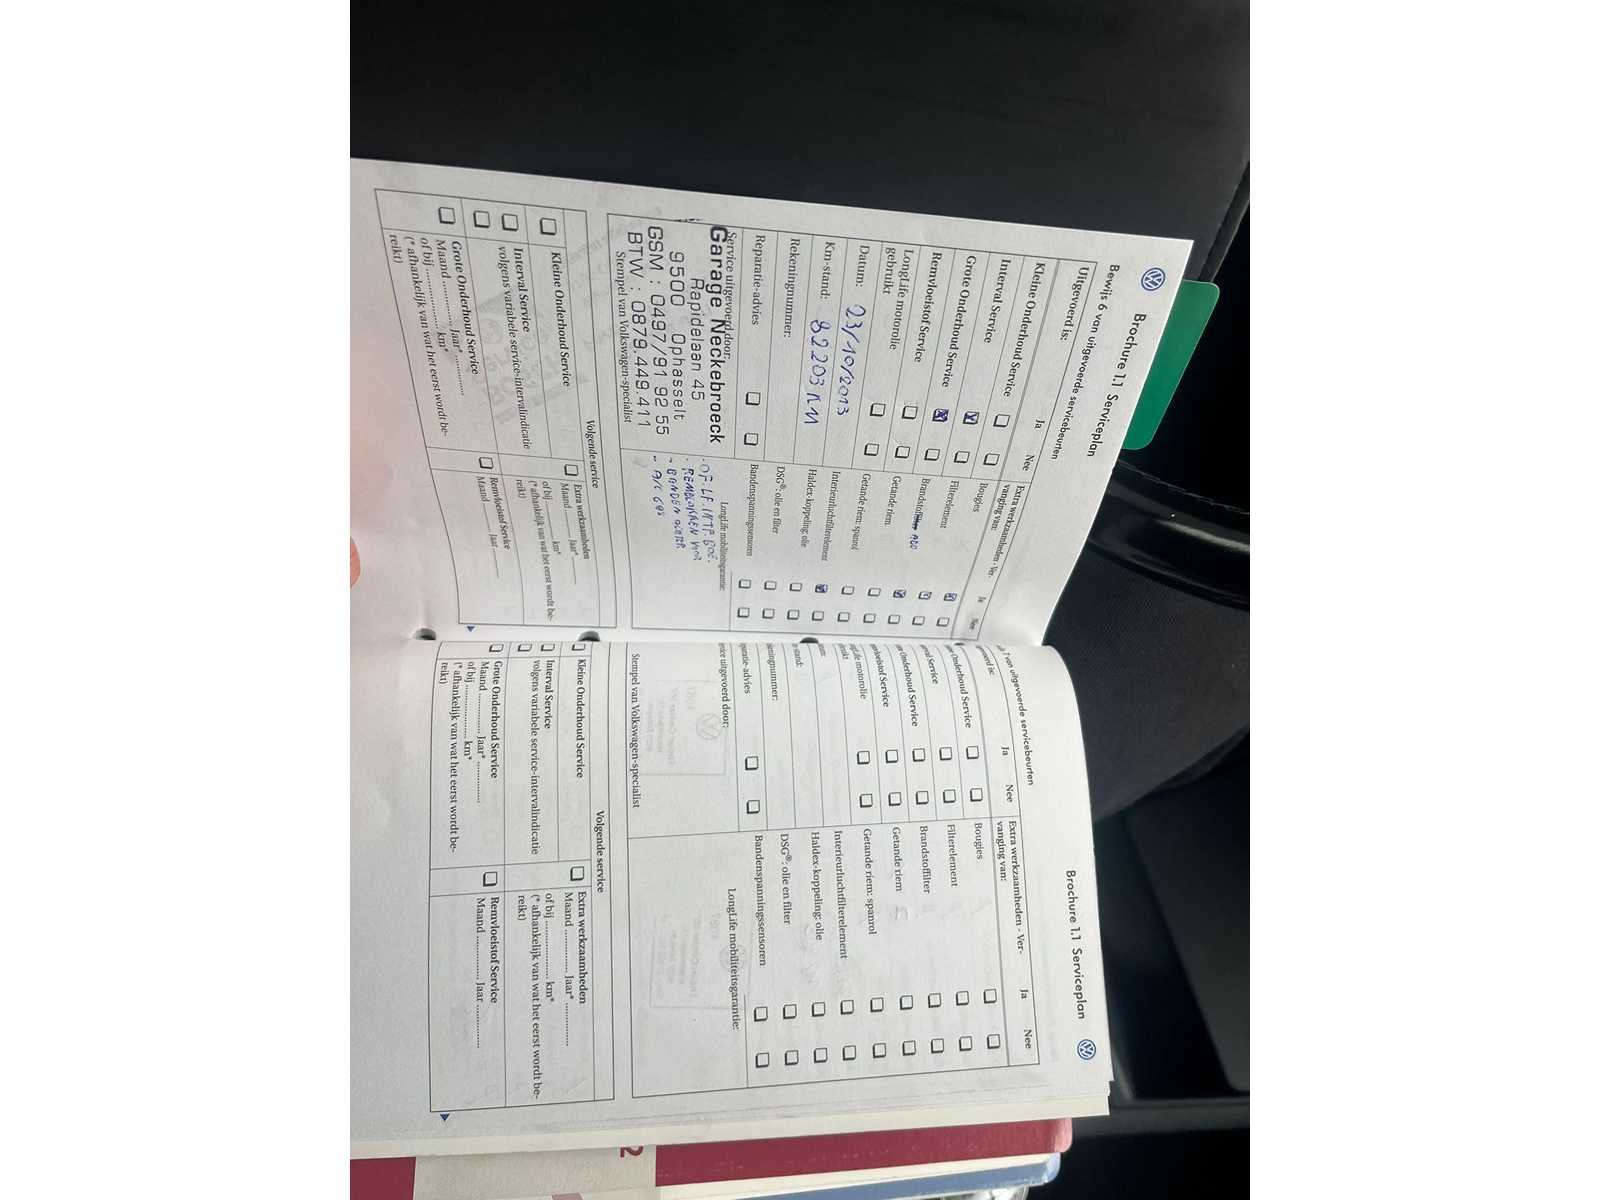 Brochure 1.1 Serviceplan
Bewijs 6 van uitgevoerde servicebeurten
Uitgevoerd is:
Ja Nee
Kleine Onderhoud Service
Interval Service
Grote Onderhoud Service
Remvloeistof Service
LongLife motorolie
gebruikt
Datum: 23/10/2013
Km-stand: 82203 KM
Rekeningnummer:
Reparatie-advies
Service uitgevoerd door:
Garage Neckebroeck
Rapidelaan 45
9500 Ophasselt
GSM : 0497/91 92 55
BTW : 0879.449.411
Stempel van Volkswagen-specialist
Extra werkzaamheden - Ver-
vanging van:
Ja Nee
Bougies
Filterelement
Brandstoffilter ADD
Getande riem
Getande riem: spanrol
Interieurluchtfilterelement
Haldex-koppeling olie
DSG®: olie en filter
Bandenspanningssensoren
LongLife mobiliteitsgarantie:
- REMBLOKKEN VOOR
- BANDEN ACHTER
- A/C GAS
Volgende service
Kleine Onderhoud Service
Interval Service
volgens variabele service-intervalindicatie
Grote Onderhoud Service
Maand ............ Jaar* ............
of bij .................... km*
(* afhankelijk van wat het eerst wordt be-
reikt)
Extra werkzaamheden
Maand ............ Jaar* ............
of bij .................... km*
(* afhankelijk van wat het eerst wordt be-
reikt)
Remvloeistof Service
Maand ............ Jaar ............
Brochure 1.1 Serviceplan
7 van uitgevoerde servicebeurten
voerd is:
Ja Nee
Onderhoud Service
val Service
Onderhoud Service
vloeistof Service
gLife motorolie
bruikt
stand:
keningnummer:
paratie-advies
rvice uitgevoerd door:
Stempel van Volkswagen-specialist
Extra werkzaamheden - Ver-
vanging van:
Ja Nee
Bougies
Filterelement
Brandstoffilter
Getande riem
Getande riem: spanrol
Interieurluchtfilterelement
Haldex-koppeling: olie
DSG®: olie en filter
Bandenspanningssensoren
LongLife mobiliteitsgarantie:
Volgende service
Kleine Onderhoud Service
Interval Service
volgens variabele service-intervalindicatie
Grote Onderhoud Service
Maand ............ Jaar* ............
of bij .................... km*
(* afhankelijk van wat het eerst wordt be-
reikt)
Extra werkzaamheden
Maand ............ Jaar* ............
of bij .................... km*
(* afhankelijk van wat het eerst wordt be-
reikt)
Remvloeistof Service
Maand ............ Jaar ............
2